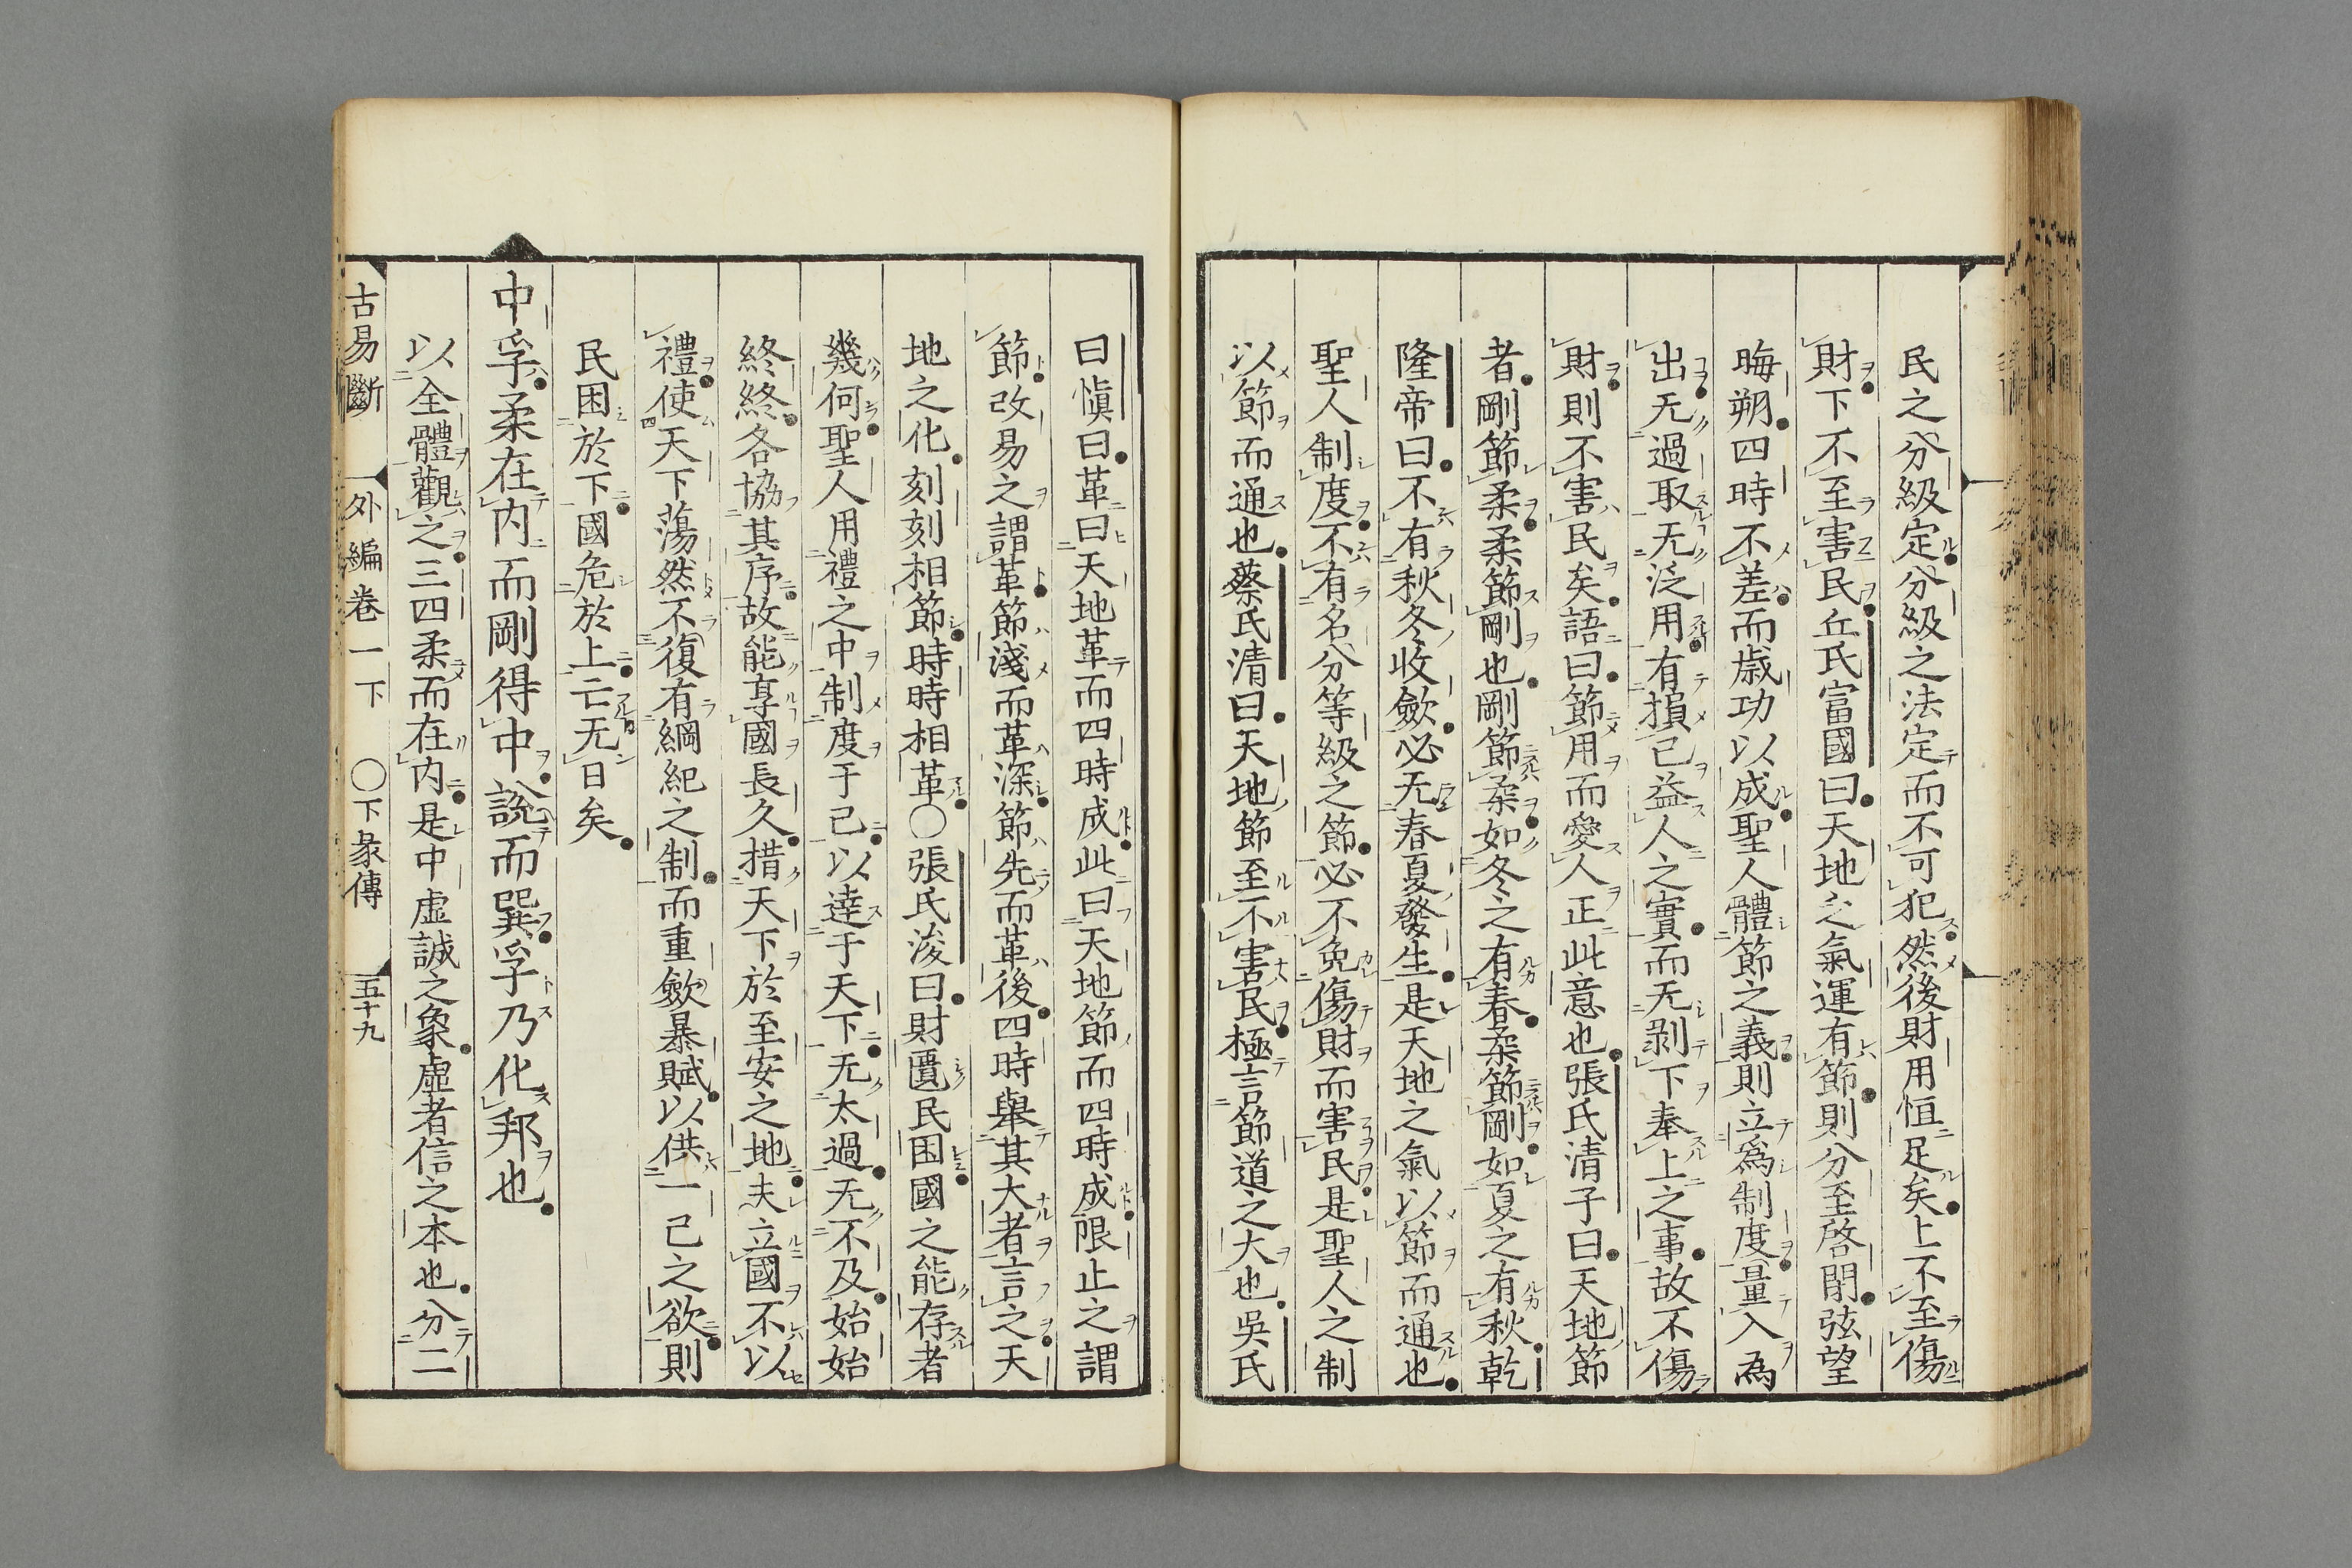 民之分級定分級之法定而不可犯然後財用恒足矣上不至傷
財下不至害民丘氏富國曰天地之氣運有節則分至啓閉弦望
晦朔四時不差而歲功以成聖人體節之義則立爲制度量入為
出无過取无泛用有損己益人之實而无剥下奉上之事故不傷
財則不害民矣語曰節用而愛人正此意也張氏清子曰天地節
者剛節柔柔節剛也剛節柔如冬之有春柔節剛如夏之有秋乾
隆帝曰不有秋冬收斂必无春夏發生是天地之氣以節而通也
聖人制度不有名分等級之節必不免傷財而害民是聖人之制
以節而通也蔡氏清曰天地節至不害民極言節道之大也吳氏
曰愼曰革曰天地革而四時成此曰天地節而四時成限止之謂
節改易之謂革節淺而革深節先而革後四時舉其大者言之天
地之化刻刻相節時時相革〇張氏浚曰財匱民困國之能存者
幾何聖人用禮之中制度于己以達于天下无太過无不及始始
終終各協其序故能享國長久措天下於至安之地夫立國不以
禮使天下蕩然不復有綱紀之制而重斂暴賦以供一己之欲則
民困於下國危於上亡无日矣
中孚柔在内而剛得中說而巽孚乃化邦也
以全體觀之三四柔而在内是中虛誠之象虛者信之本也分二
古易斷 外編卷一下 〇下彖傳 五十九